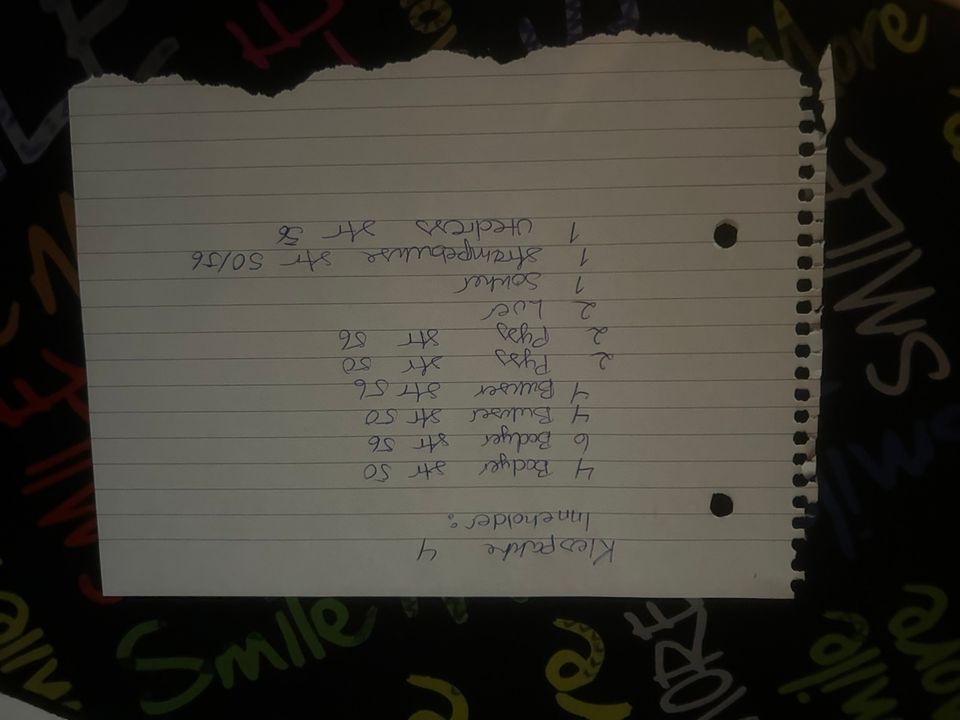 Klespakke 4
Inneholder:
4 Bodyer str 50
6 Bodyer str 56
4 Bukser str 50
4 Bukser str 56
2 Pyss str 50
2 Pyss str 56
2 Luer
1 Sokker
1 strampebukse str 50/56
1 utedress str 56
Smile
SMILE
more